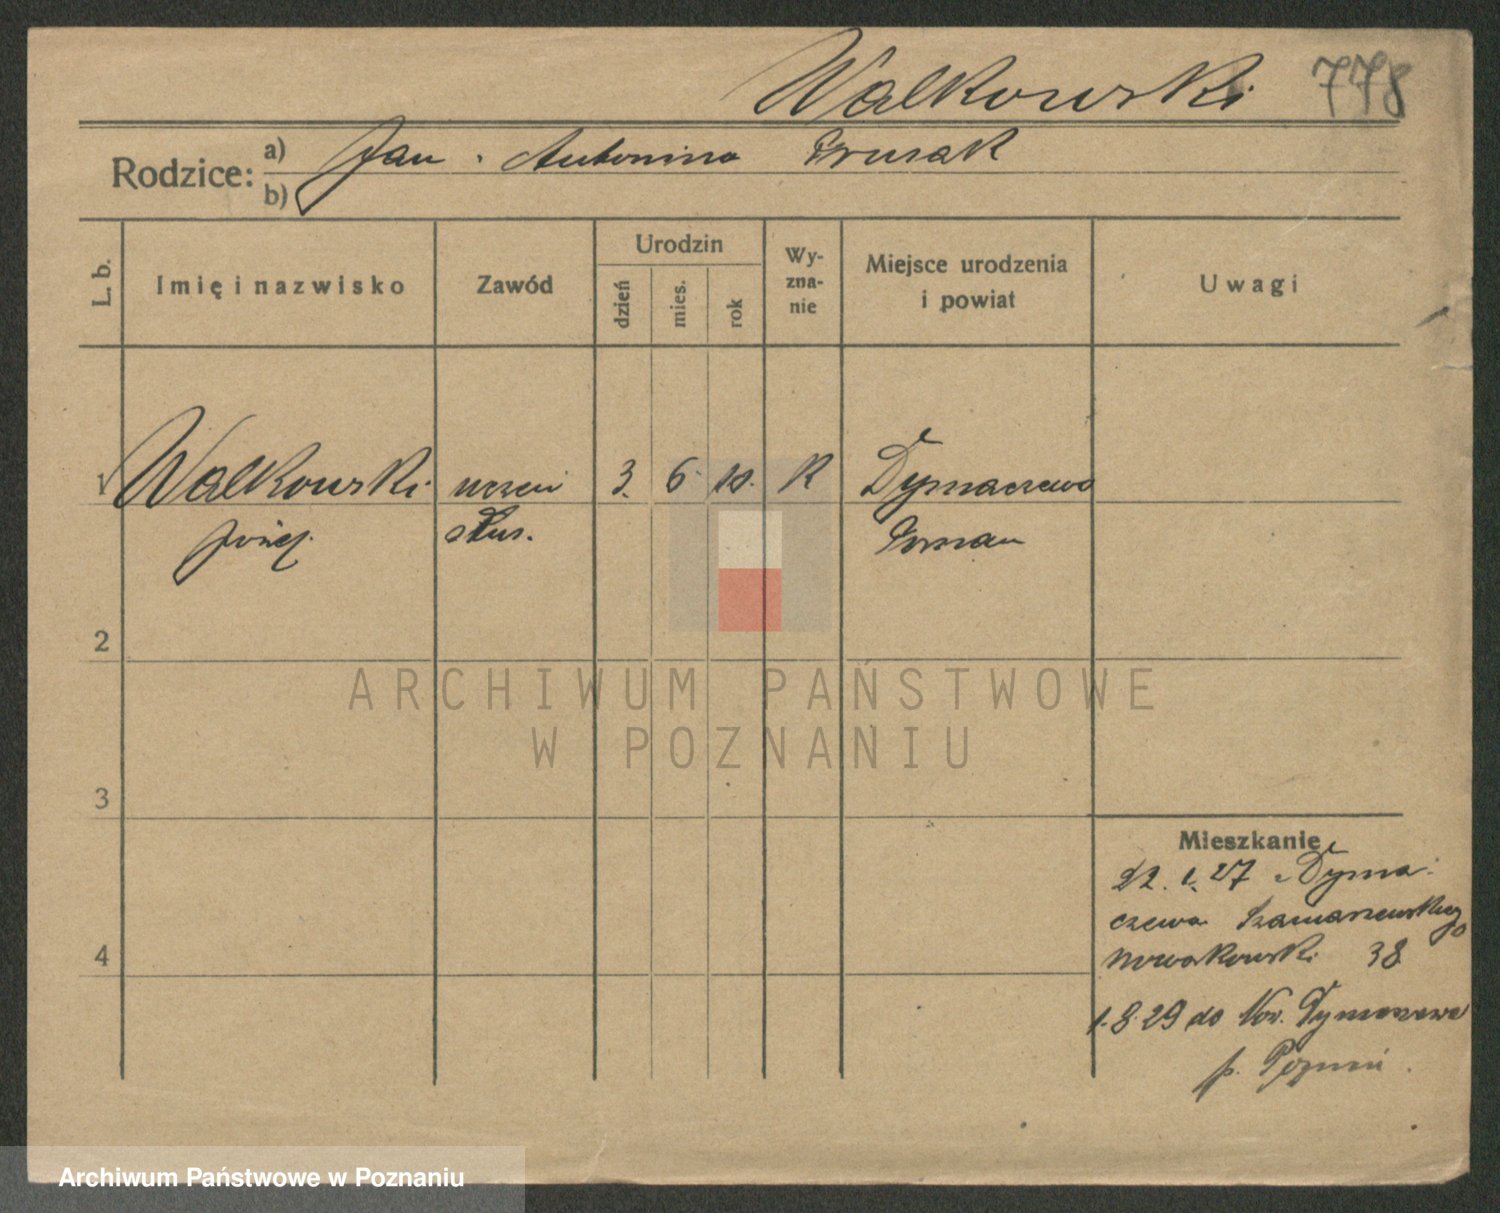 Walkowski 778
Rodzice: a) Jan . Antonina
b)
L. b. Imię i nazwisko Zawód Urodzin dzień mies. rok Wy-zna-nie Miejsce urodzenia i powiat Uwagi
Walkowski uczeń 3. 6. 10. K Dymaczewo
Józef. ślus. Poznań
2
ARCHIWUM PAŃSTWOWE
W POZNANIU
3
Mieszkanie
22. 1. 27 z Dyma-
czewa Szamarzewskiego
Nowakowski 38
4
1.8.29 do Now. Dymaczewa
p. Poznań.
Archiwum Państwowe w Poznaniu